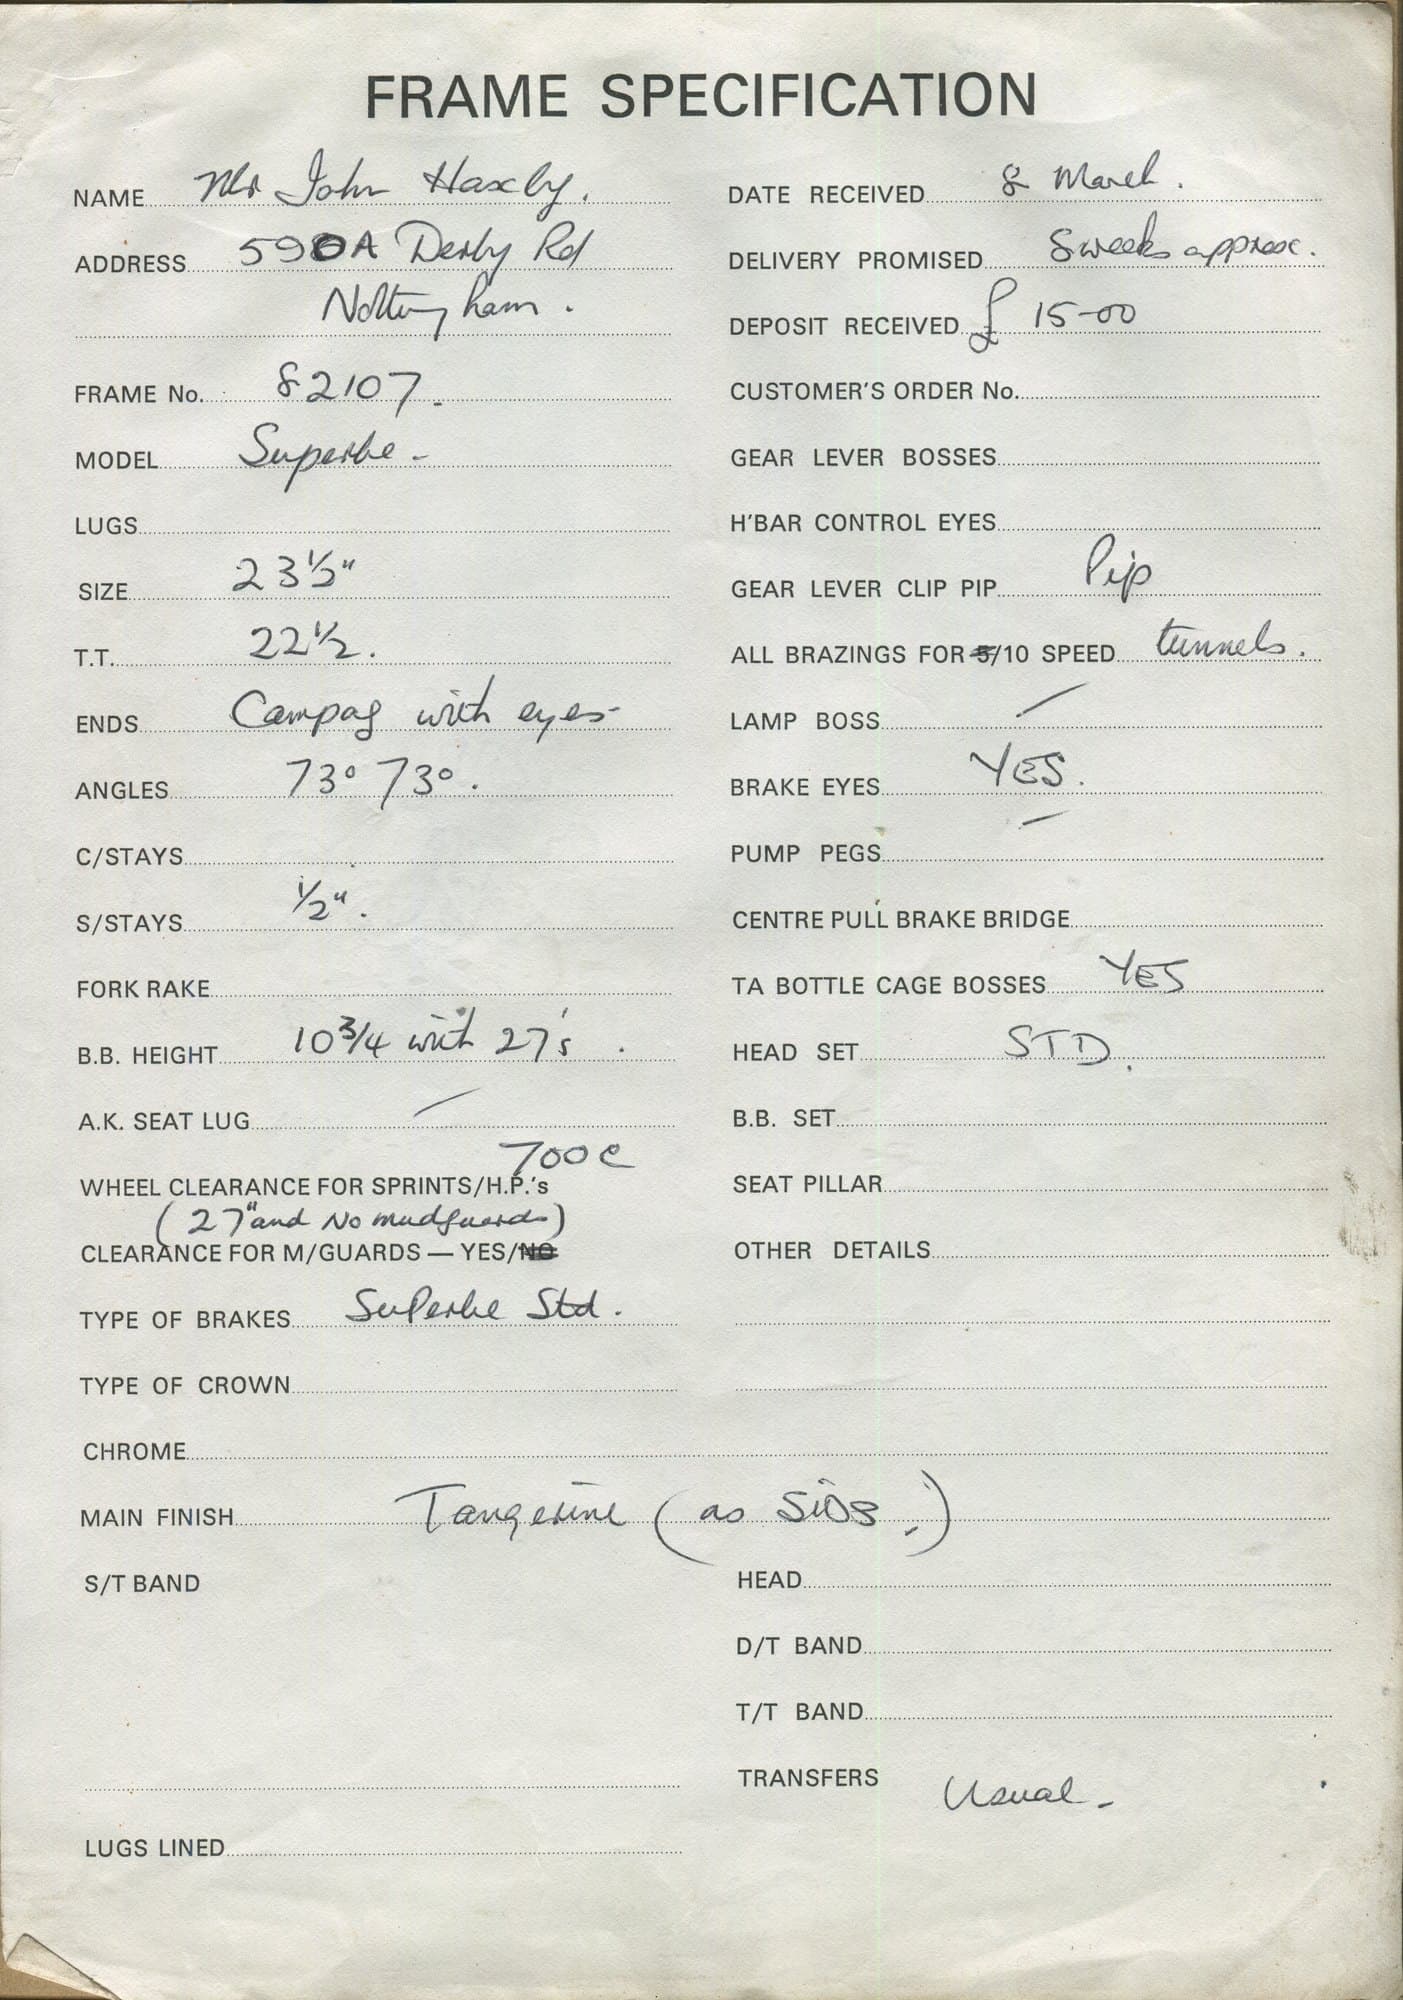 FRAME SPECIFICATION
NAME Mr John Haxby.
ADDRESS 590A Derby Rd
Nottingham.
FRAME No. 82107.
MODEL Superbe -
LUGS
SIZE 23½"
T.T. 22½.
ENDS Campag with eyes
ANGLES 73° 73°.
C/STAYS
S/STAYS ½".
FORK RAKE
B.B. HEIGHT 10¾ with 27's.
A.K. SEAT LUG /
700c
WHEEL CLEARANCE FOR SPRINTS/H.P.'s
(27" and No mudguards)
CLEARANCE FOR M/GUARDS — YES/NO
TYPE OF BRAKES Superbe Std.
TYPE OF CROWN
DATE RECEIVED 8 March.
DELIVERY PROMISED 8 weeks approx.
DEPOSIT RECEIVED £ 15-00
CUSTOMER'S ORDER No.
GEAR LEVER BOSSES
H'BAR CONTROL EYES
GEAR LEVER CLIP PIP Pip
ALL BRAZINGS FOR 5/10 SPEED tunnels.
LAMP BOSS /
BRAKE EYES YES.
PUMP PEGS /
CENTRE PULL BRAKE BRIDGE
TA BOTTLE CAGE BOSSES YES
HEAD SET STD.
B.B. SET
SEAT PILLAR
OTHER DETAILS
CHROME
MAIN FINISH Tangerine (as SiDS.)
S/T BAND
LUGS LINED
HEAD
D/T BAND
T/T BAND
TRANSFERS Usual -